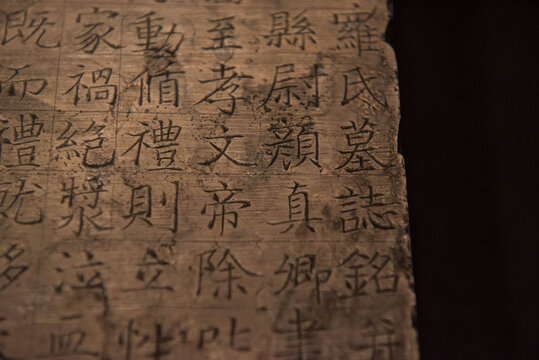 羅氏墓誌銘并
縣尉顏真卿書
至孝文帝除
動循禮則立性
家禍絕漿泣血
既而禮就多